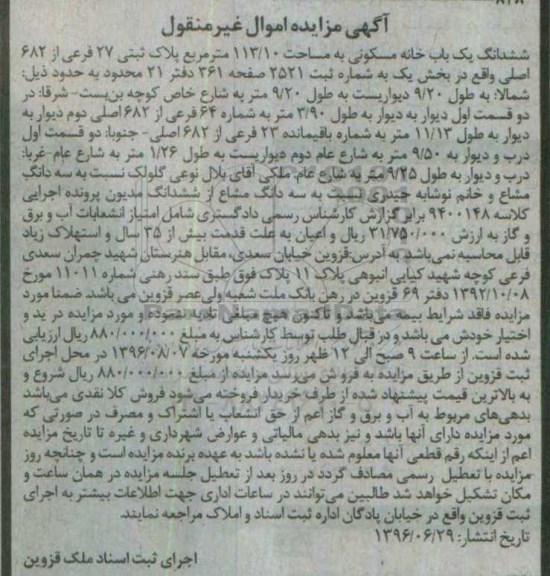 آگهی مزایده اموال غیرمنقول
ششدانگ یک باب خانه مسکونی به مساحت ۱۱۳/۱۰ مترمربع پلاک ثبتی ۲۷ فرعی از ۶۸۲
اصلی واقع در بخش یک به شماره ثبت ۲۵۲۱ صفحه ۳۶۱ دفتر ۲۱ محدود به حدود ذیل:
شمالا: به طول ۹/۲۰ دیواریست به طول ۹/۲۰ متر به شارع خاص کوچه بن‌بست- شرقا: در
دو قسمت اول دیوار به دیوار به طول ۳/۹۰ متر به شماره ۶۴ فرعی از ۶۸۲ اصلی دوم دیوار به
دیوار به طول ۱۱/۱۳ متر به شماره باقیمانده ۲۳ فرعی از ۶۸۲ اصلی- جنوبا: دو قسمت اول
درب و دیوار به ۹/۵۰ متر به شارع عام دوم دیواریست به طول ۱/۲۶ متر به شارع عام-غربا:
درب و دیوار به طول ۹/۲۵ متر به شارع عام. ملکی آقای بلال نوعی گلولک نسبت به سه دانگ
مشاع و خانم نوشابه حیدری نسبت به سه دانگ مشاع از ششدانگ مدیون پرونده اجرایی
کلاسه ۹۴۰۰۱۴۸ برابر گزارش کارشناس رسمی دادگستری شامل امتیاز انشعابات آب و برق
و گاز به ارزش ۳۱/۷۵۰/۰۰۰ ریال و اعیان به علت قدمت بیش از ۳۵ سال و استهلاک زیاد
قابل محاسبه نمی‌باشد به آدرس:قزوین خیابان سعدی، مقابل هنرستان شهید چمران سعدی
فرعی کوچه شهید کیایی انبوهی پلاک ۱۱ پلاک فوق طبق سند رهنی شماره ۱۱۰۱۱ مورخ
۱۳۹۲/۱۰/۰۸ دفتر ۶۹ قزوین در رهن بانک ملت شعبه ولی‌عصر قزوین می باشد ضمنا مورد
مزایده فاقد شرایط بیمه می‌باشد و تاکنون هیچ مبلغی تادیه ننموده و مورد مزایده در ید و
اختیار خودش می باشد و در قبال طلب توسط کارشناس به مبلغ ۸۸۰/۰۰۰/۰۰۰ ریال ارزیابی
شده است. از ساعت ۹ صبح الی ۱۲ ظهر روز یکشنبه مورخه ۱۳۹۶/۰۸/۰۷ در محل اجرای
ثبت قزوین از طریق مزایده به فروش می‌رسد مزایده از مبلغ ۸۸۰/۰۰۰/۰۰۰ ریال شروع و
به بالاترین قیمت پیشنهاد شده از طرف خریدار فروخته می‌شود فروش کلا نقدی می‌باشد
بدهی‌های مربوط به آب و برق و گاز اعم از حق انشعاب یا اشتراک و مصرف در صورتی که
مورد مزایده دارای آنها باشد و نیز بدهی مالیاتی و عوارض شهرداری و غیره تا تاریخ مزایده
اعم از اینکه رقم قطعی آنها معلوم شده یا نشده باشد به عهده برنده مزایده است و چنانچه روز
مزایده با تعطیل رسمی مصادف گردد در روز بعد از تعطیل جلسه مزایده در همان ساعت و
مکان تشکیل خواهد شد طالبین می‌توانند در ساعات اداری جهت اطلاعات بیشتر به اجرای
ثبت قزوین واقع در خیابان پادگان اداره ثبت اسناد و املاک مراجعه نمایند.
تاریخ انتشار: ۱۳۹۶/۰۶/۲۹
اجرای ثبت اسناد ملک قزوین